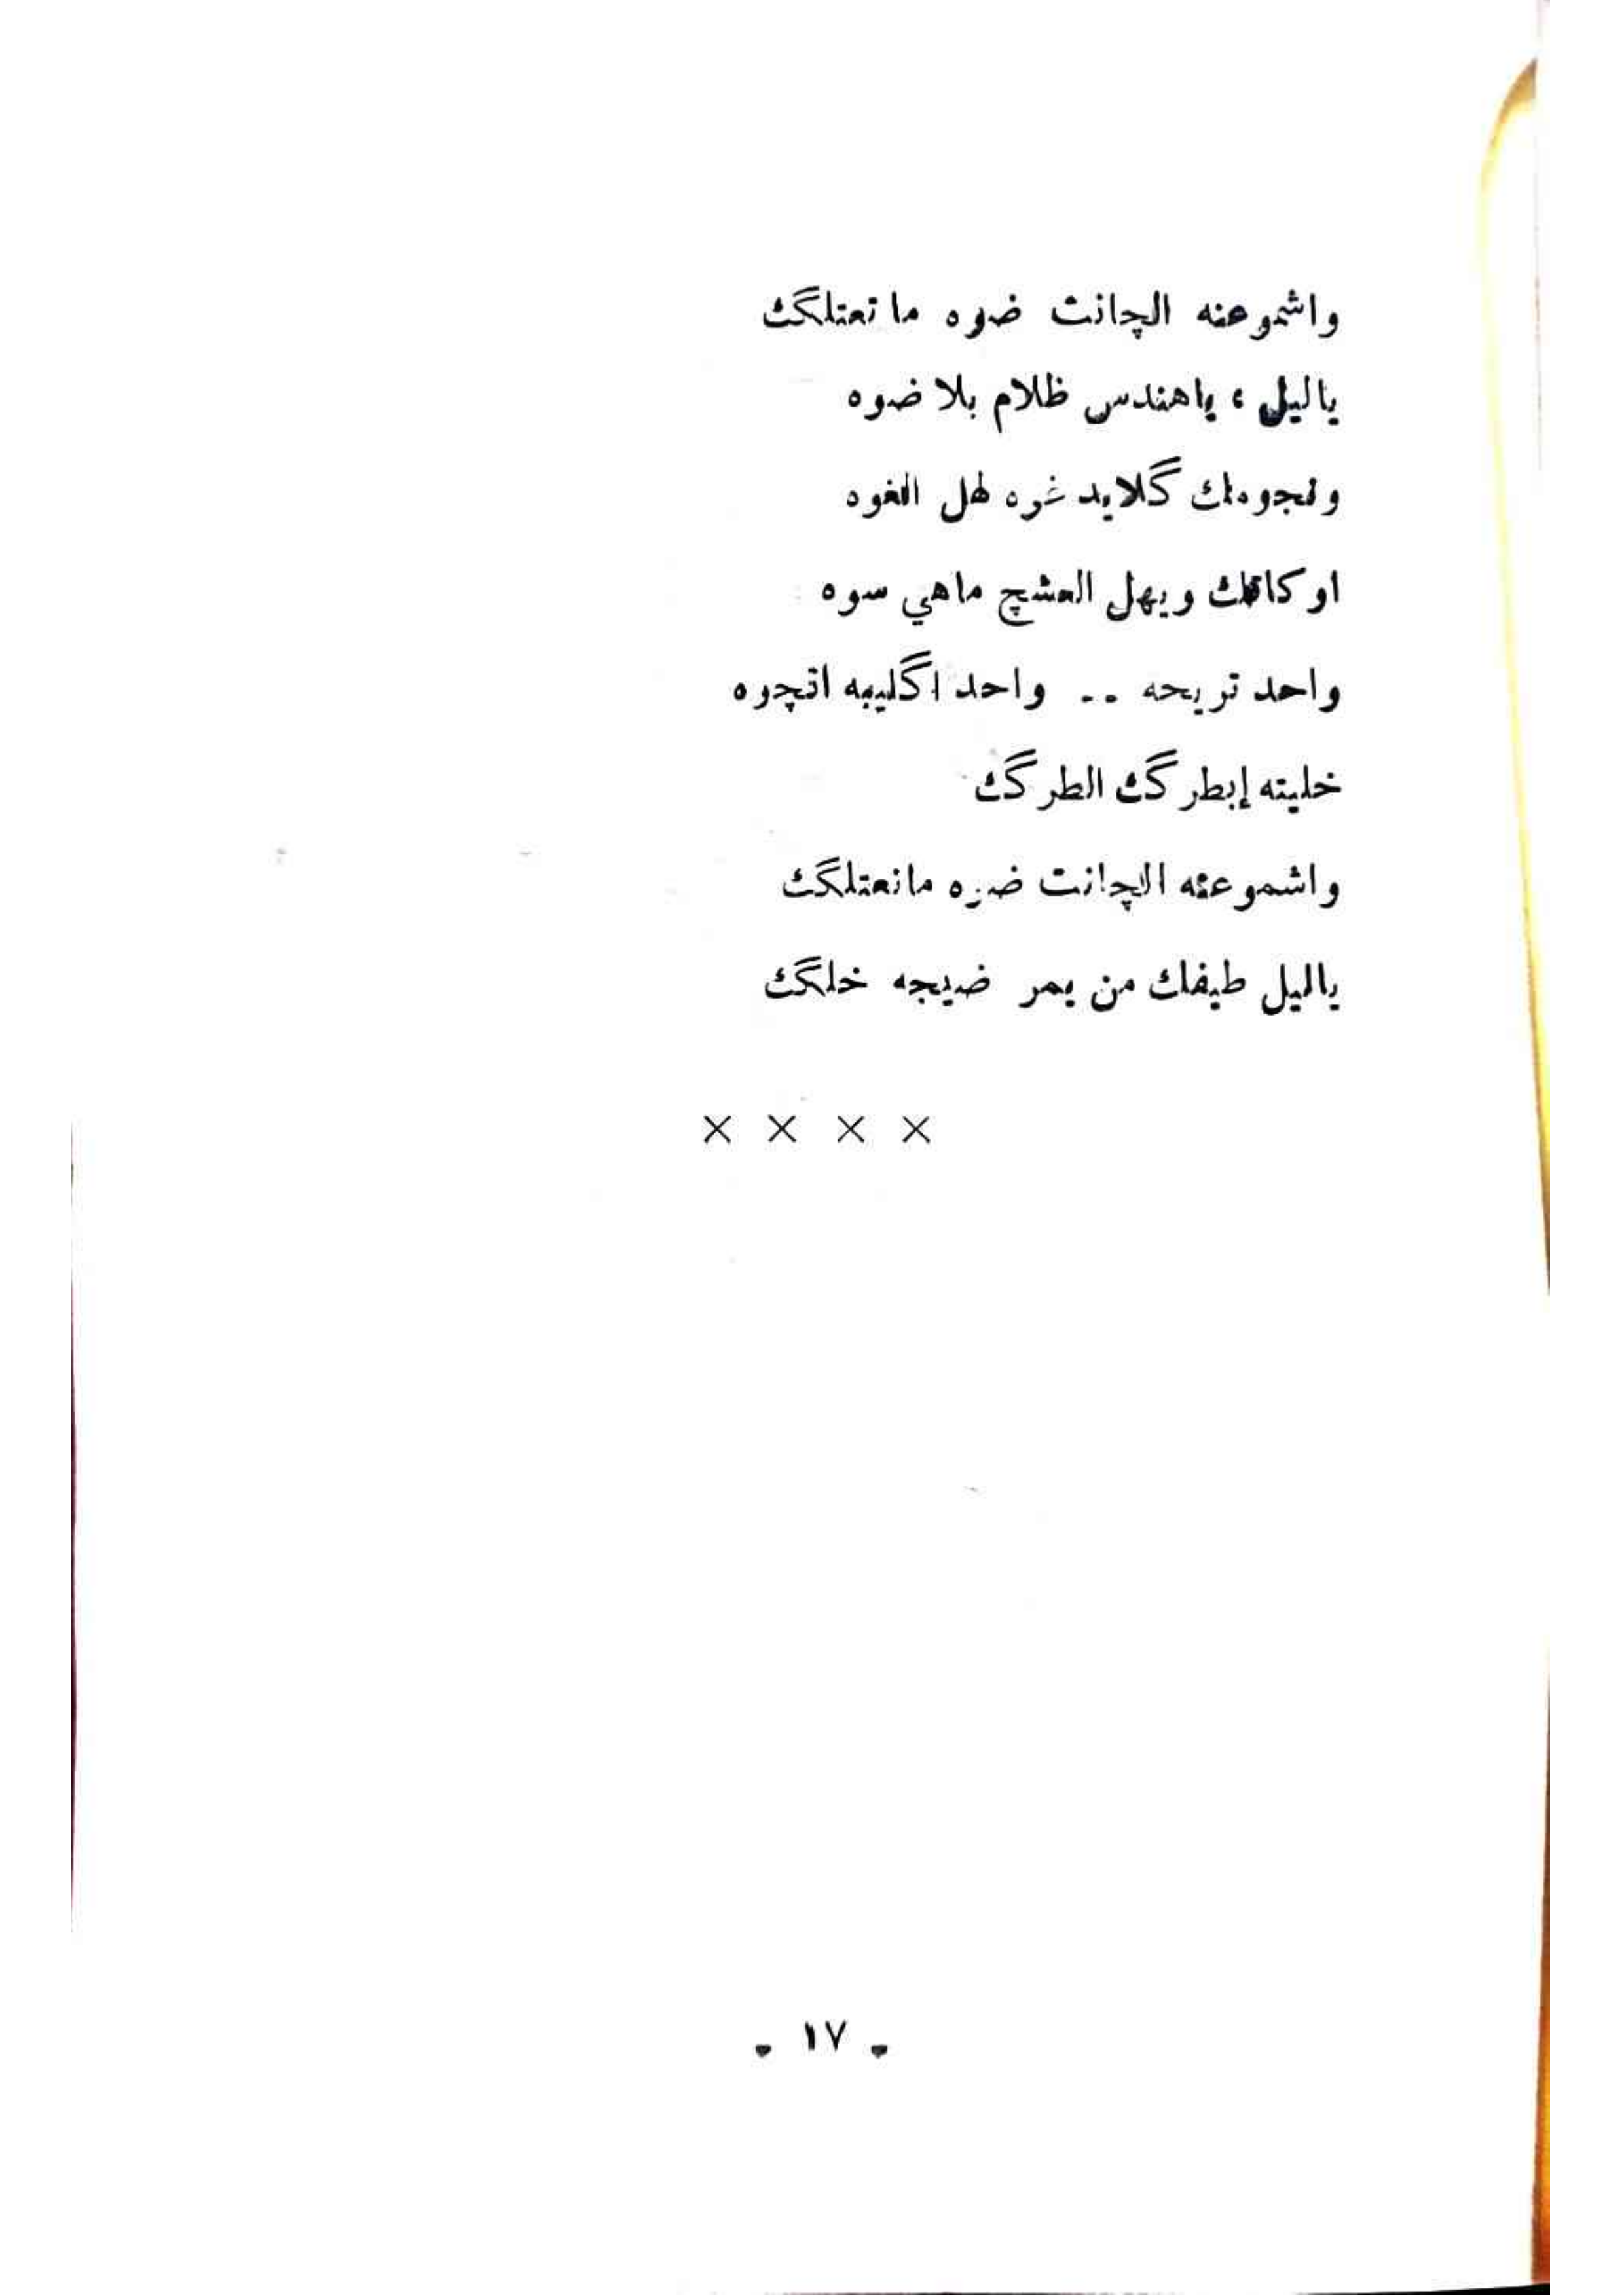 واشموعنه الچانت ضوه ماتعتلگك
ياليل ، ياهندس ظلام بلا ضوه
ونجومك گلايد غره لهل الغوه
او كاتلك ويهل العشچ ماهي سوه
واحد تريحه .. واحد اگليبه اتچوه
خليته إبطرگك الطرگك
واشموعنه الچانت ضوه مانعتلگك
ياليل طيفك من يمر ضيجه خلگك
× × × ×
١٧